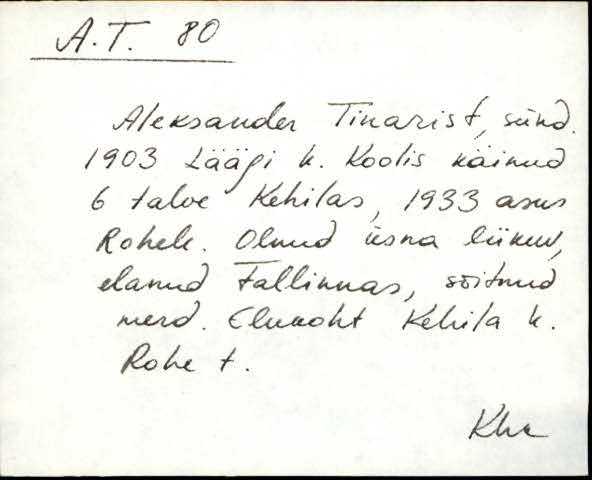 A.T. 80
Aleksander Tinarist, sünd.
1903 Läägi k. Koolis käinud
6 talve Kehilas, 1933 asus
Rohele. Olnud üsna liikuv,
elanud Tallinnas, sõitnud
merd. Elukoht Kehila k.
Rohe t.
Khk